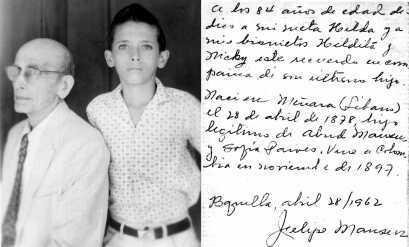 A los 84 años de edad de-
dico a mi nieta Hilda y a
mis bisnietos Hildita y
Nicky este recuerdo en com
pañía de su último hijo.
Nací en Miñara (Líbano)
el 28 de abril de 1878, hijo
legítimo de Abud Mansur
y Sofía Tawes. Vine a Colom
bia en noviembre de 1897.
Bquilla, abril 28/1962
Felipe Mansur